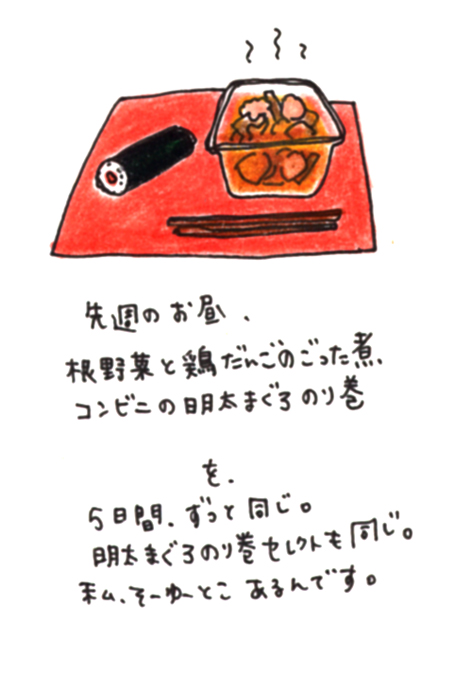 先週のお昼、
根野菜と鶏だんごのごった煮、
コンビニの明太まぐろのり巻
を、
5日間、ずっと同じ。
明太まぐろのり巻セレクトも同じ。
私、そーゆーとこあるんです。